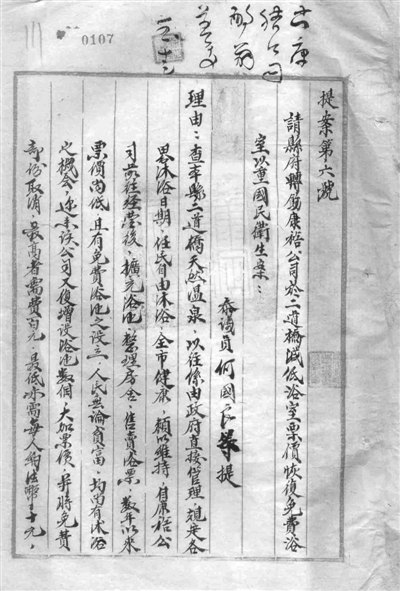 0107
提案第六號
請縣府轉飭康裕公司於二道橋減低浴室票價恢復免費浴
室以重國民衛生案：
參議員何國民等提
理由：查本縣二道橋天然溫泉，以往係由政府直接管理，規定各
界沐浴日期，任民自由沐浴，全市健康，賴以維持，自康裕公
司前往經營後，擴充浴池，整理房舍，售賣浴票，數年以來
票價尚低，且有免費浴池之設立，人民無論貧富，均尚有沐浴
之機會，近來該公司又復增設浴池數個，大加票價，並將免費
部份取消，最高者需費百元，最低亦需每人約法幣二十元，